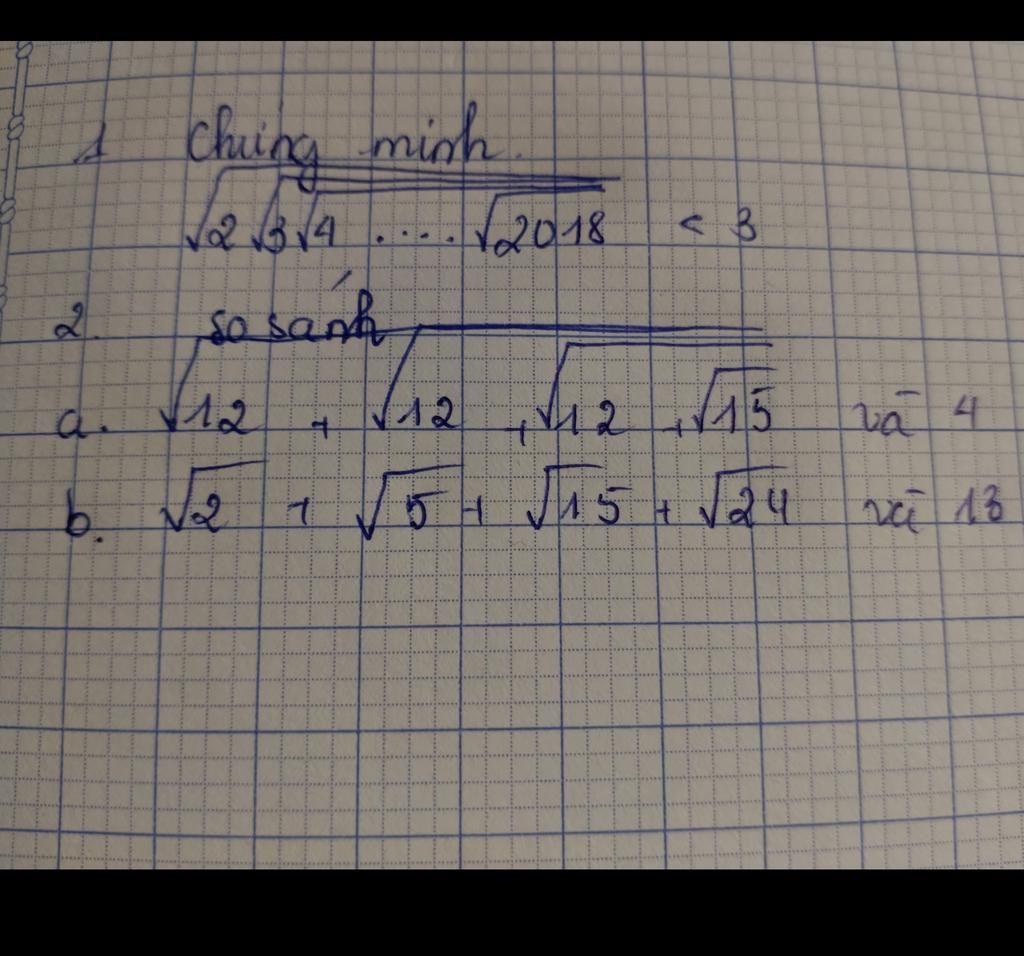 1 Chứng minh.
√2√3√4 ..... √2018 < 3
2. so sánh
a. √12 + √12 + √12 + √15 và 4
b. √2 + √5 + √15 + √24 và 13